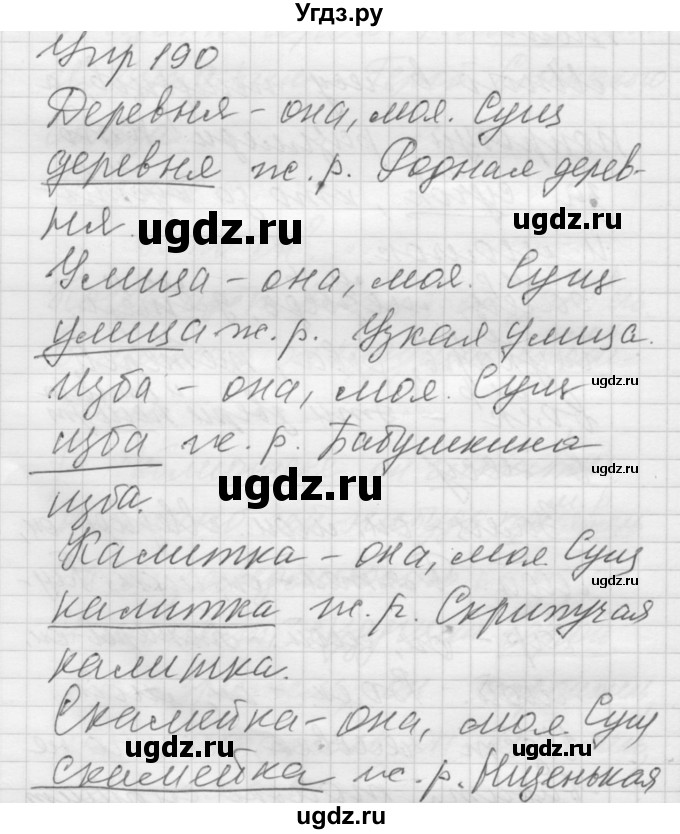 Угдз.ру
Упр 190
Деревня - она, моя. Сущ
деревня ж. р. Родная дерев-
ня.
ugdz.ru
ugdz.ru
Улица - она, моя. Сущ
улица ж. р. Узкая улица.
Изба - она, моя. Сущ
ugdz.ru
изба ж. р. Бабушкина
ugdz.ru
ugdz.ru
изба.
Калитка - она, моя. Сущ
ugdz.ru
калитка ж. р. Скрипучая
калитка.
Скамейка - она, моя. Сущ
ugdz.ru
ugdz.ru
скамейка ж. р. Низенькая
ugdz.ru